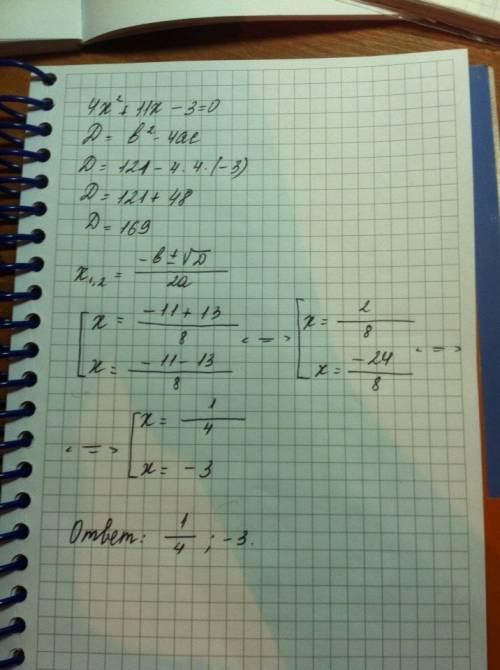 4x² + 11x - 3 = 0
D = b² - 4ac
D = 121 - 4 · 4 · (-3)
D = 121 + 48
D = 169
x₁,₂ = (-b ± √D) / 2a
[ x = (-11 + 13) / 8 <=> [ x = 2 / 8
x = (-11 - 13) / 8 x = -24 / 8 <=>
<=> [ x = 1 / 4
x = -3
Ответ: 1/4 ; -3.